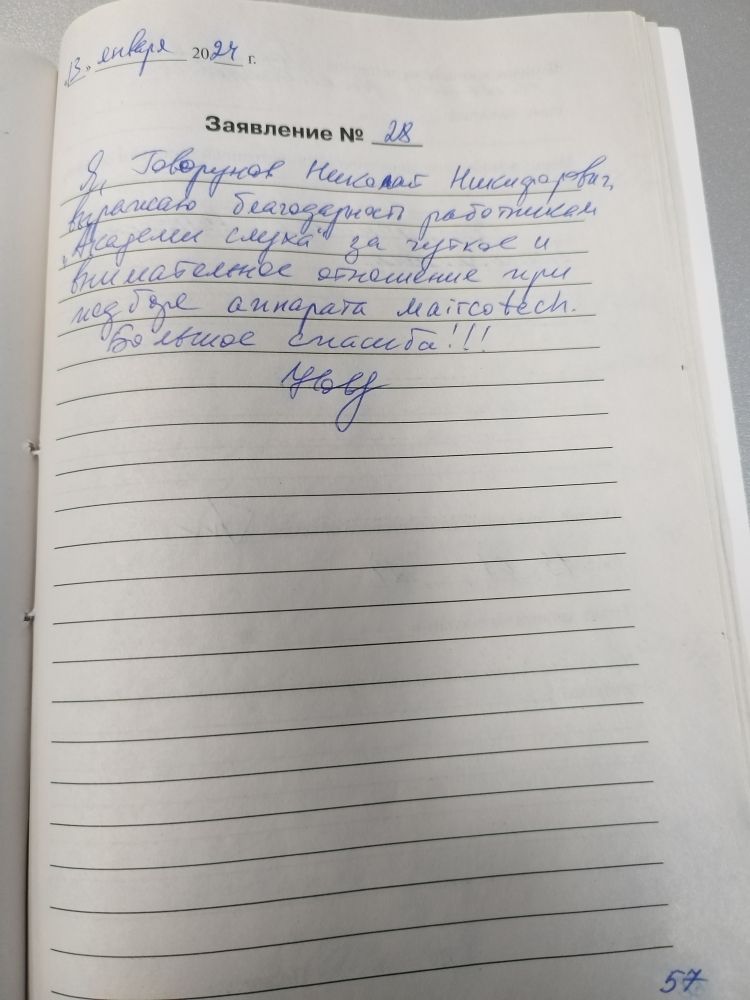 «13» января 2024 г.
Заявление № 28
Я, Говорунов Николай Никифорович,
выражаю благодарность работникам
"Академии слуха" за чуткое и
внимательное отношение при
подборе аппарата Maircotech.
Большое спасиба!!!
57